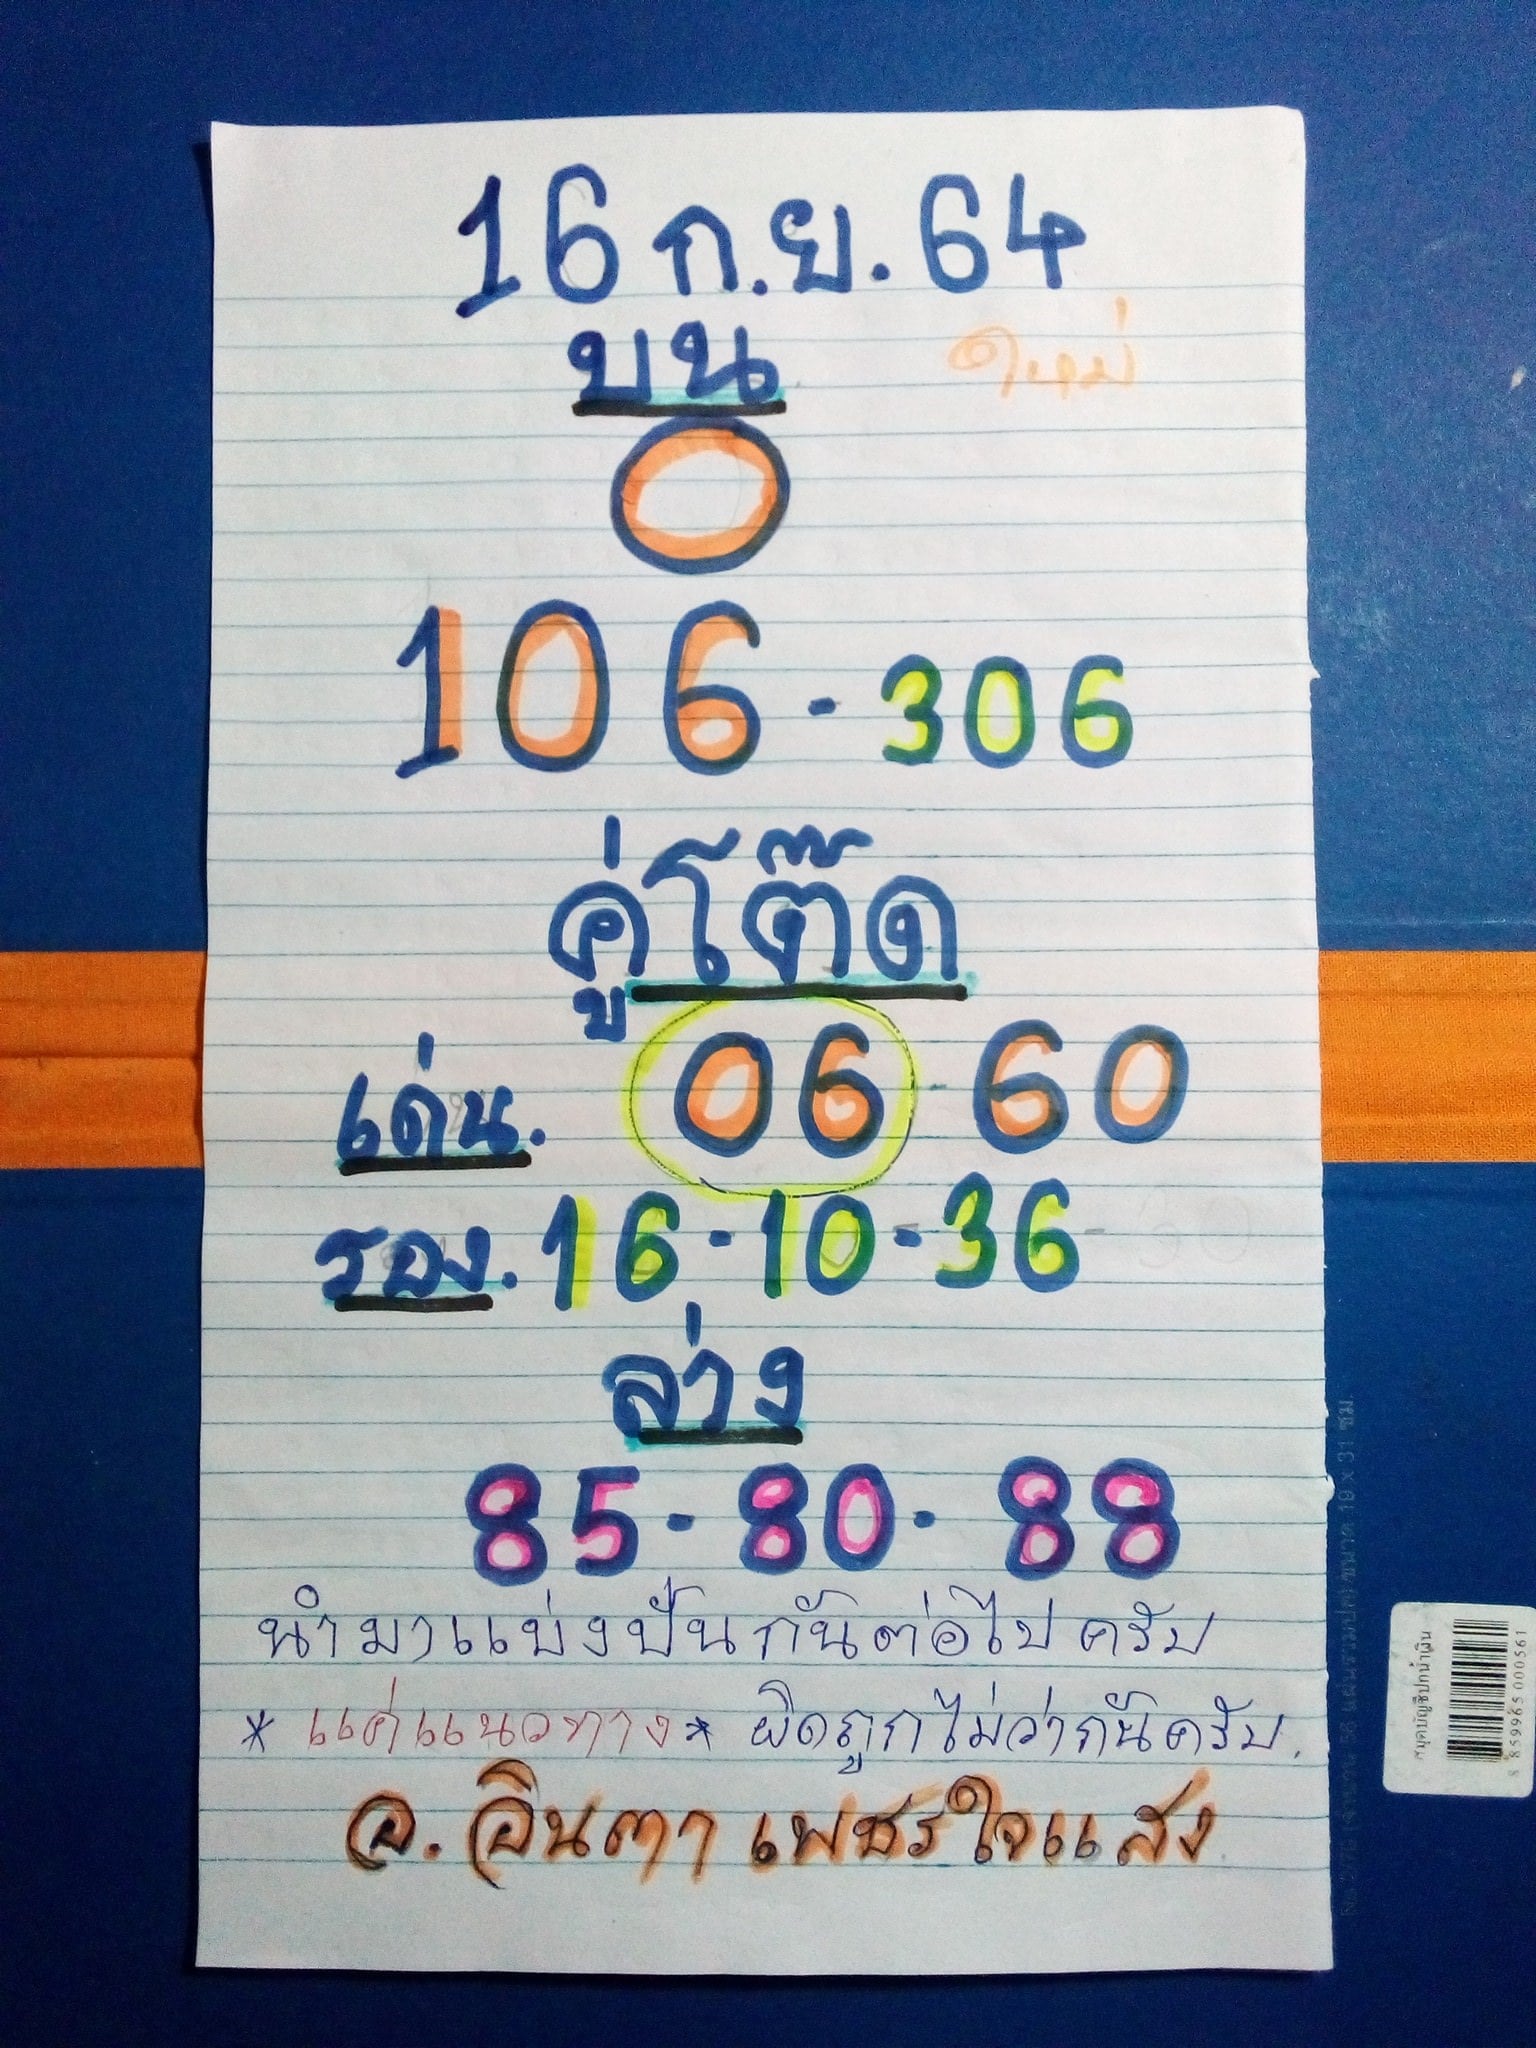 16 ก.ย. 64
บน
ใหม่
0
106 - 306
คู่โต๊ด
เด่น. 06 - 60
รอง. 16 - 10 - 36
ล่าง
85 - 80 - 88
นำมาแบ่งปันกันต่อไปครับ
* แค่แนวทาง * ผิดถูกไม่ว่ากันครับ.
อ. อินตา เพชรใจแสง
สมุดบัญชีปกน้ำเงิน
8 859965 000561